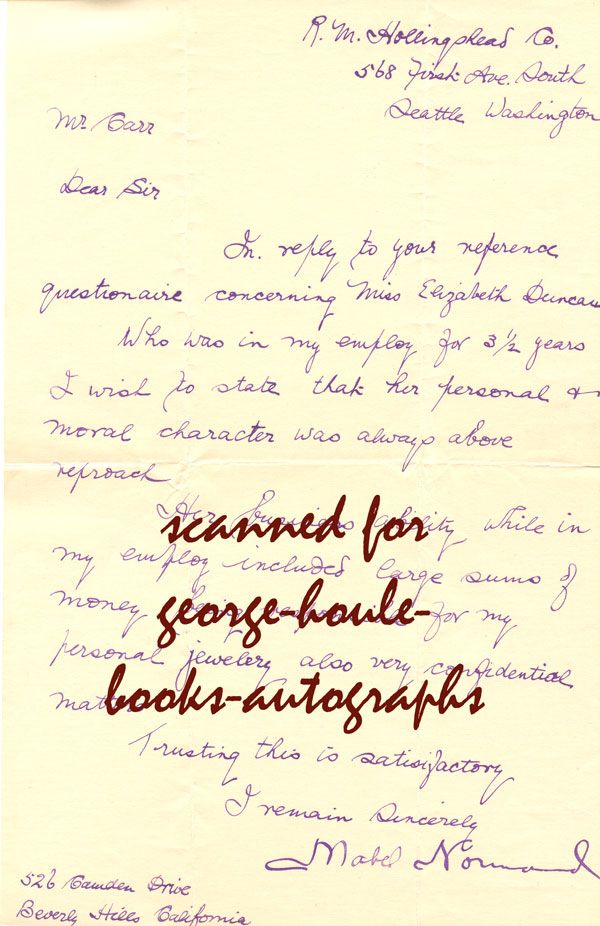 R. M. Hollingshead Co.
568 First Ave. South
Seattle Washington
Mr Carr
Dear Sir
In. reply to your reference
questionaire concerning Miss Elizabeth Duncan
Who was in my employ for 3 1/2 years
I wish to state that her personal +
moral character was always above
reproach
Her business ability while in
scanned for
my employ included large sums of
george-houle-
money for my
personal jewelery also very confidential
books-autographs
Trusting this is satisifactory
I remain Sincerely
Mabel Normand
526 Camden Drive
Beverly Hills California